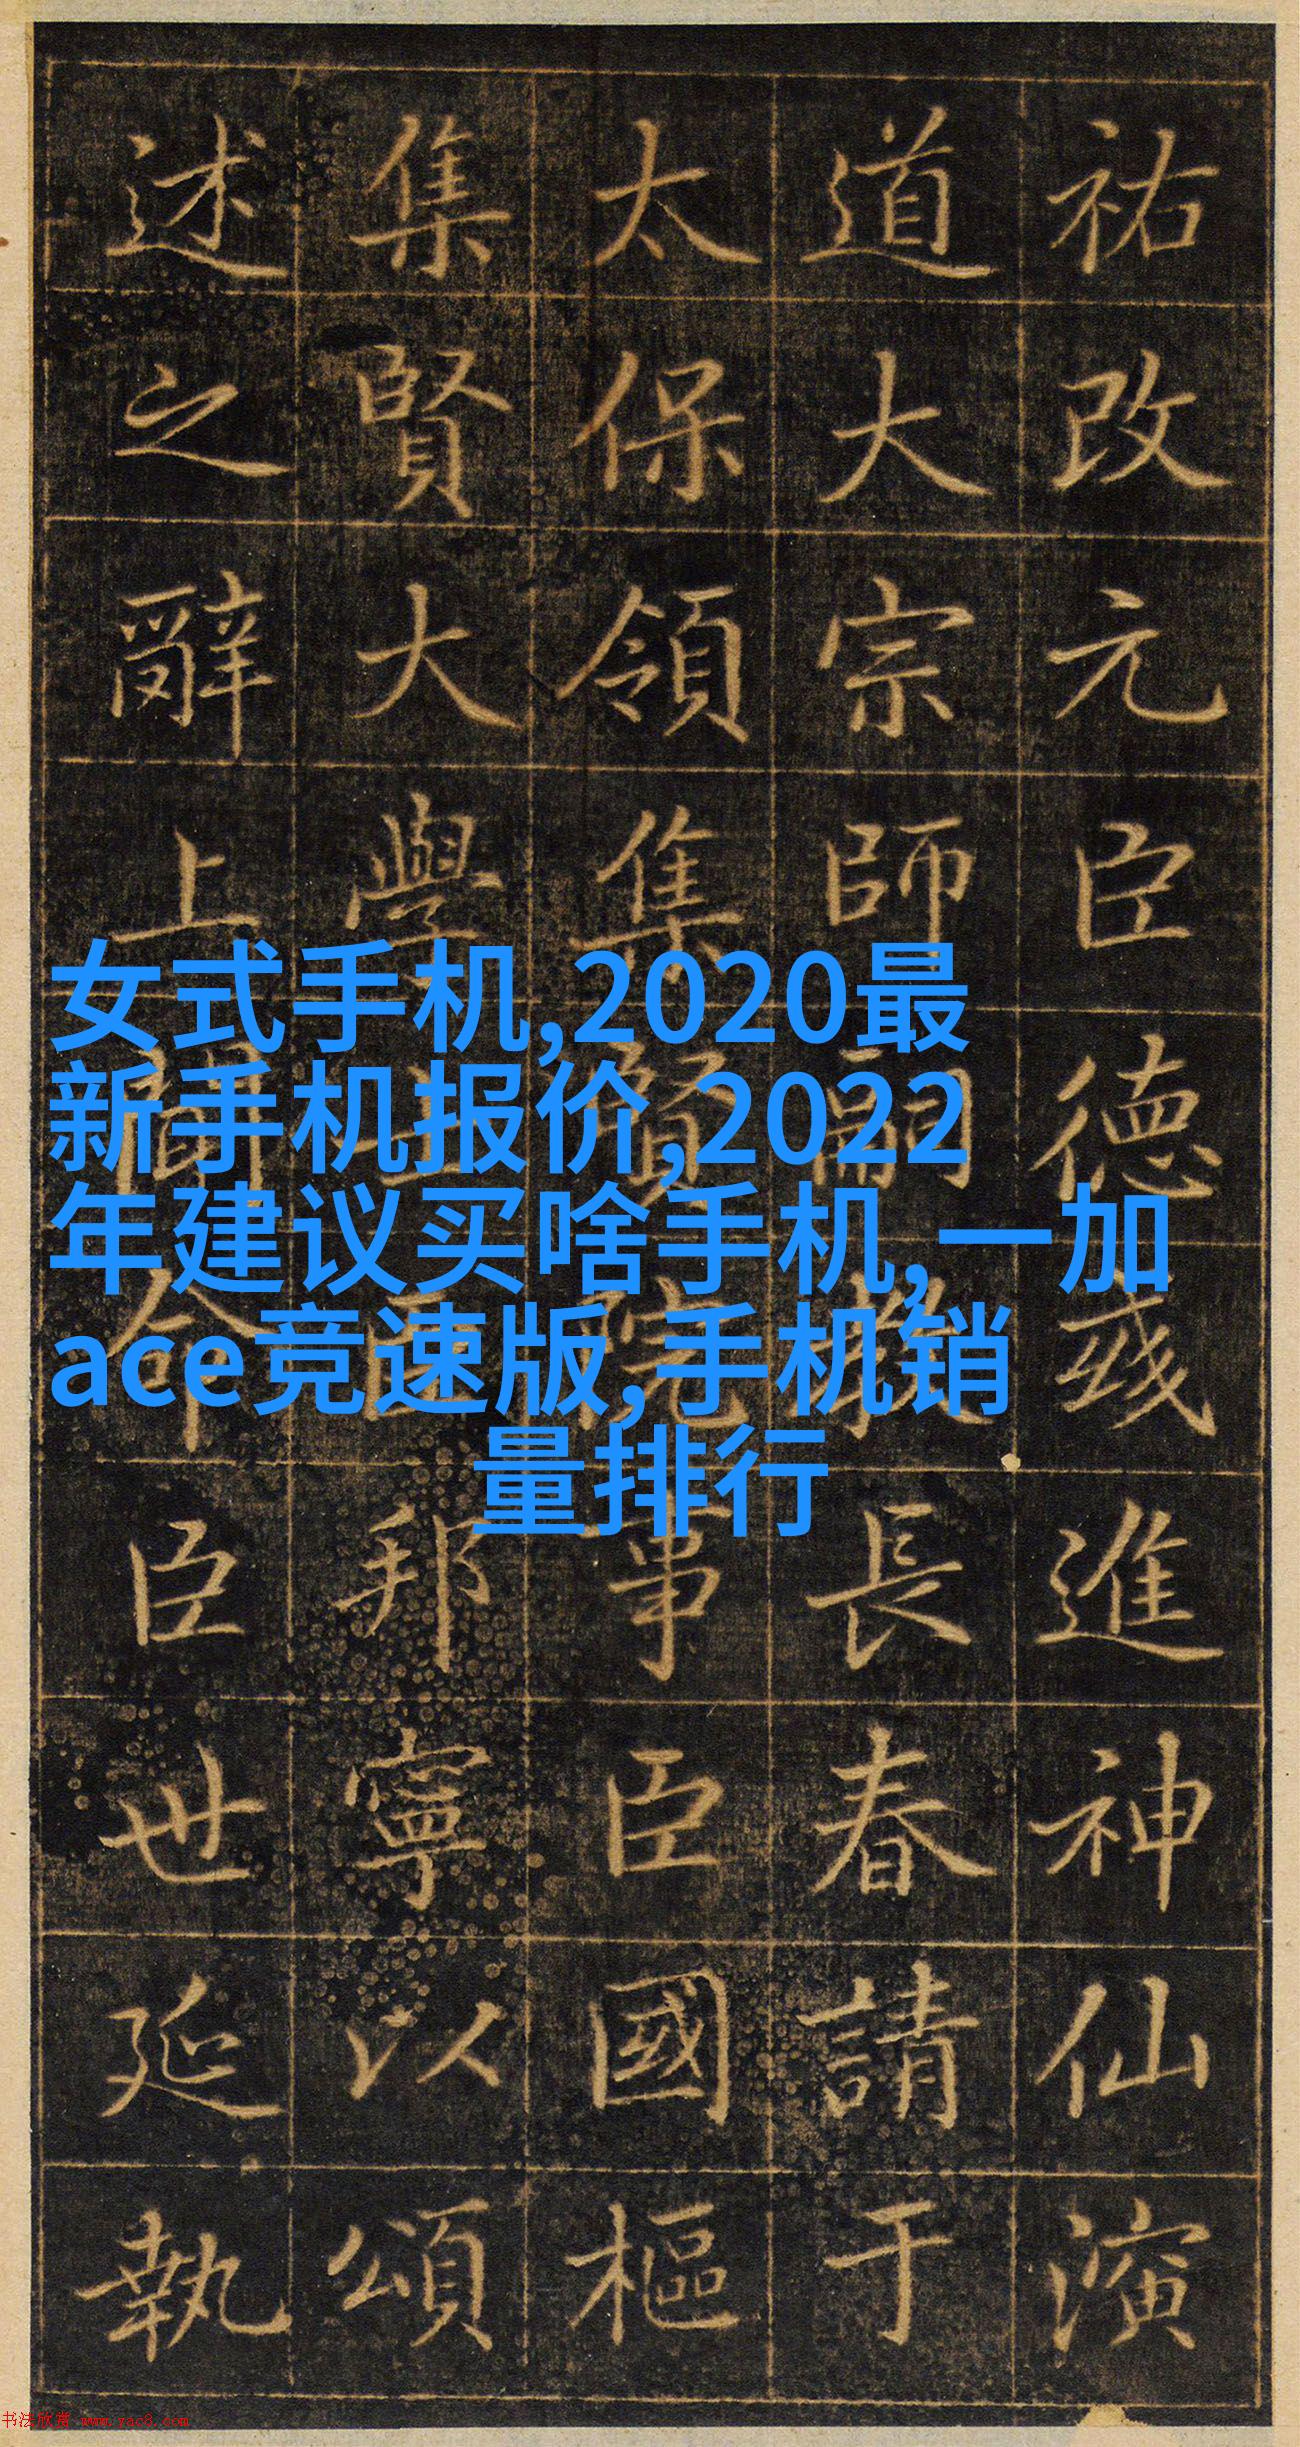 祐改元臣德彧進神仙演
道大宗師嗣教長春請于
太保領集賢院事臣國樞
集賢大學士臣邦寧以頌
述之辭上聞命臣世延執
女式手机,2020最
新手机报价,2022
年建议买啥手机,一加
ace竞速版,手机销
量排行
书法欣赏 www.yac8.com